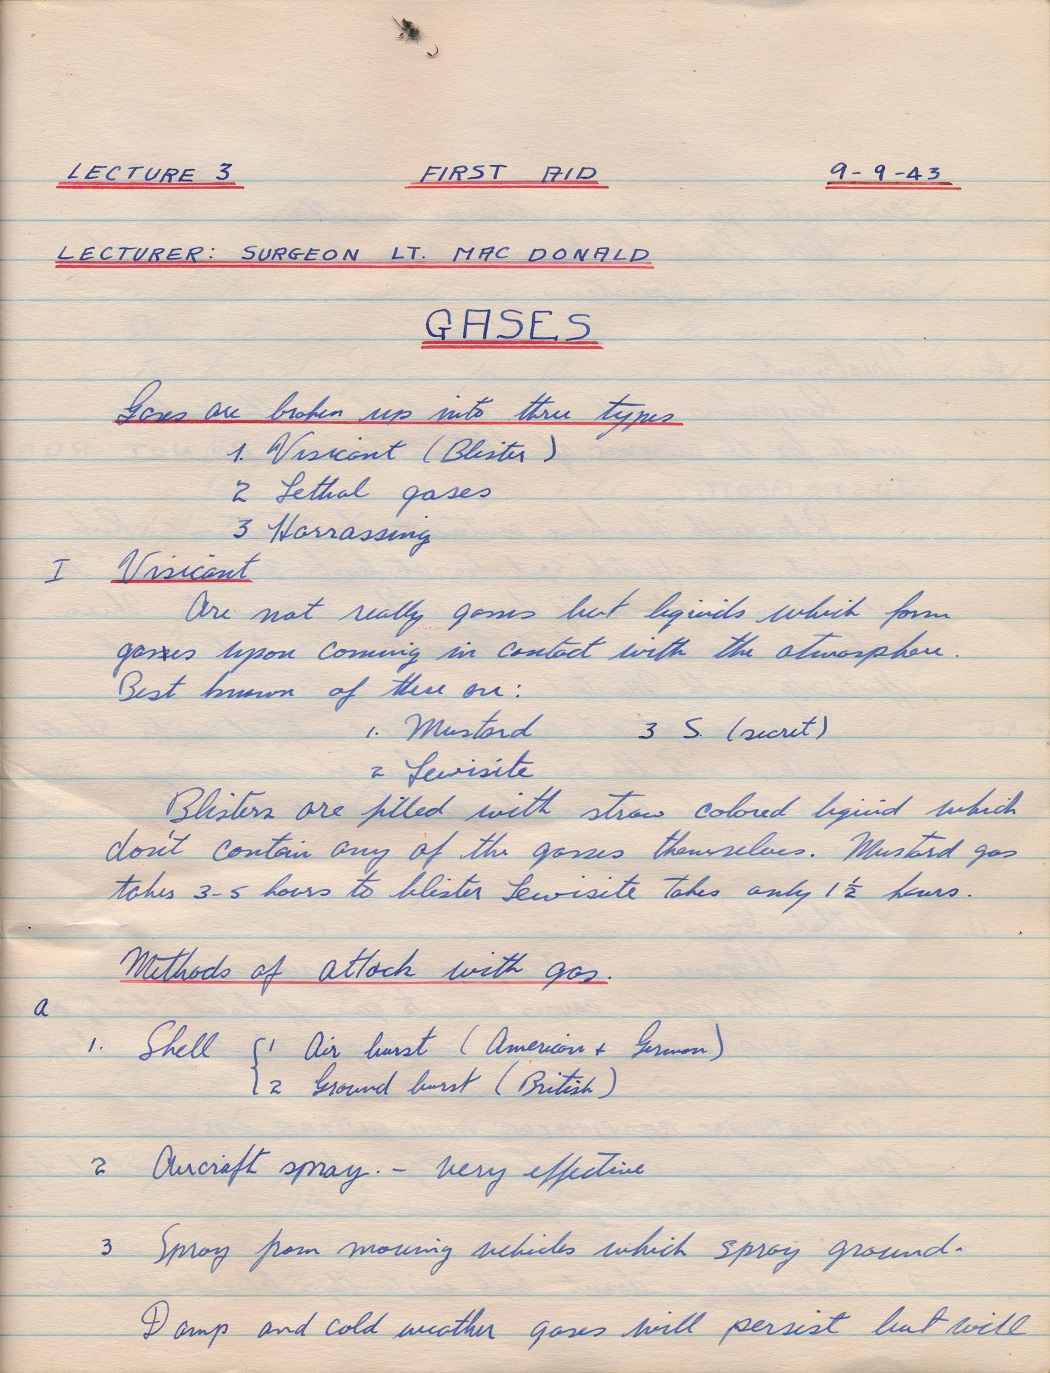 LECTURE 3 FIRST AID 9-9-43
LECTURER: SURGEON LT. MAC DONALD
GASES
Gases are broken up into three types
1. Visicant (Blister)
2 Lethal gases
3 Harrassing
I Visicant
Are not really gasses but liquids which form
gasses upon coming in contact with the atmosphere.
Best known of these are:
1. Mustard 3 S. (secret)
2 Lewisite
Blisters are filled with straw colored liquid which
don't contain any of the gasses themselves. Mustard gas
takes 3-5 hours to blister Lewisite takes only 1½ hours.
Methods of attack with gas.
a
1. Shell { 1 Air burst (American + German)
2 Ground burst (British)
2 Aircraft spray. - very effective
3 Spray from moving vehicles which spray ground.
Damp and cold weather gases will persist but will